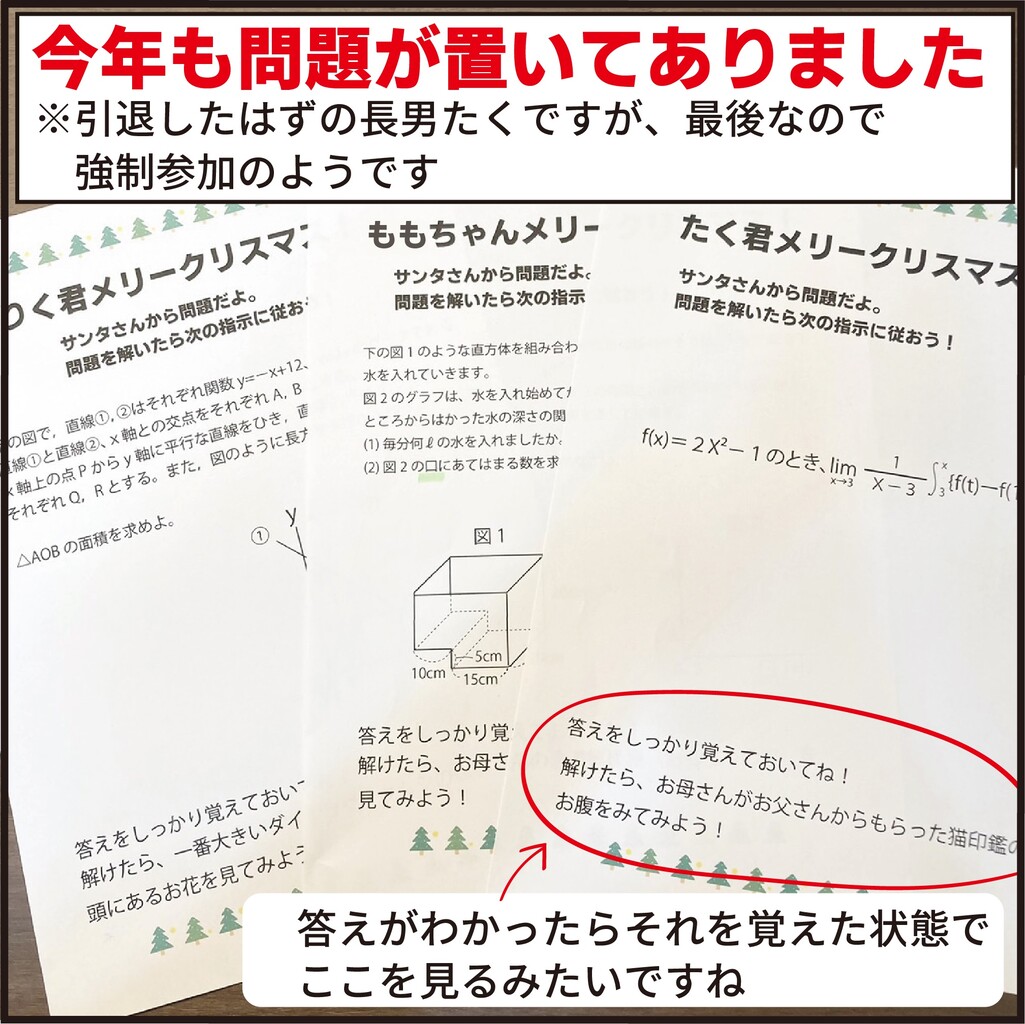 今年も問題が置いてありました
※引退したはずの長男たくですが、最後なので
強制参加のようです
く君メリークリスマス
サンタさんから問題だよ。
問題を解いたら次の指示に従おう
の図で，直線①，②はそれぞれ関数 y=－x+12、
直線①と直線②、x 軸との交点をそれぞれ A，B
x 軸上の点 P から y 軸に平行な直線をひき，直
それぞれ Q，R とする。また，図のように長方
△AOB の面積を求めよ。
① y
答えをしっかり覚えておいて
解けたら、一番大きいダイ
頭にあるお花を見てみよう
ももちゃんメリー
サンタさんから問題だよ。
問題を解いたら次の指示
下の図 1 のような直方体を組み合わ
水を入れていきます。
図 2 のグラフは、水を入れ始めてか
ところからはかった水の深さの関
(1) 毎分何 ℓ の水を入れましたか。
(2) 図 2 の口にあてはまる数を求
図 1
5cm
10cm
15cm
答えをしっかり覚
解けたら、お母さ
見てみよう！
たく君メリークリスマス
サンタさんから問題だよ。
問題を解いたら次の指示に従おう！
f(x) = 2 X² − 1 のとき、lim x→3 1/(X − 3) ∫₃ˣ {f(t)−f(
答えをしっかり覚えておいてね！
解けたら、お母さんがお父さんからもらった猫印鑑の
お腹をみてみよう！
答えがわかったらそれを覚えた状態で
ここを見るみたいですね